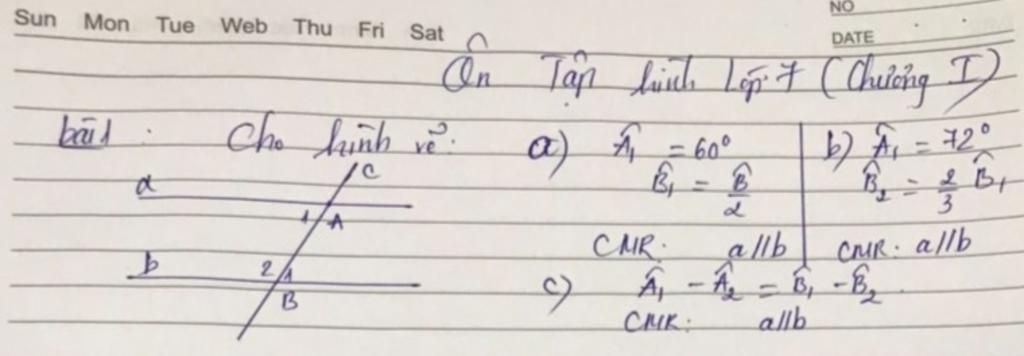 Sun Mon Tue Wed Thu Fri Sat
NO
DATE
Ôn Tập hình Lớp 7 (Chương I)
bài 1 : Cho hình vẽ:
a) Â₁ = 60°
B̂₁ = B̂/2
CMR: a//b
b) Â₁ = 72°
B̂₂ = 2/3 B̂₁
CMR: a//b
c) Â₁ - Â₂ = B̂₁ - B̂₂
CMR: a//b
a
c
1 A
b
2 1
B